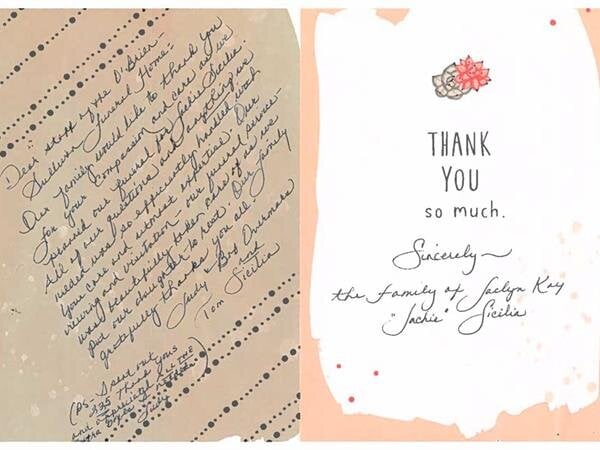 Dear staff of the O'Brien-
Sullivan Funeral Home:-
Our family would like to thank you
for your compassion and care as we
planned our funeral for Jackie Sicilia.
All of our questions and anything we
needed was so efficiently handled with
your care and utmost expertise. Our
viewing and visitation - our funeral service -
was beautifully taken care of as we
put our daughter to rest. Our family
gratefully thanks you all.
Judy & Bob Overmars
and
Tom Sicilia
(PS - I sent out
Thank yous
and appreciated ALL THE
extra
Judy
THANK
YOU
so much.
Sincerely~
the family of Jaclyn Kay
"Jackie" Sicilia